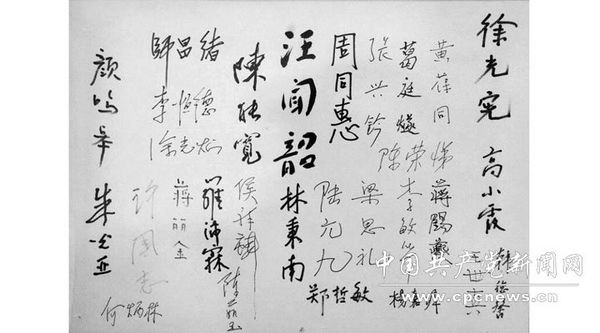 徐光宪
高小霞
黄葆同
葛庭燧
张兴钤
陈荣悌
蒋锡夔
李敏华
梁思礼
杨嘉墀
周同惠
陆元九
郑哲敏
汪闻韶
林秉南
陳能寬
侯祥麟
陈茹玉
師昌緒
李恒德
羅沛霖
蒋丽金
许国志
何炳林
颜鸣皋
朱光亚
中国共产党新闻网
www.cpcnews.cn